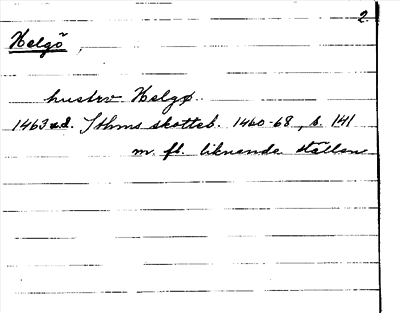 2
Helgö,
hustrv Helgø.
1463 u.d. Sthms skotteb. 1460-68, s. 141
m. fl. liknande ställen